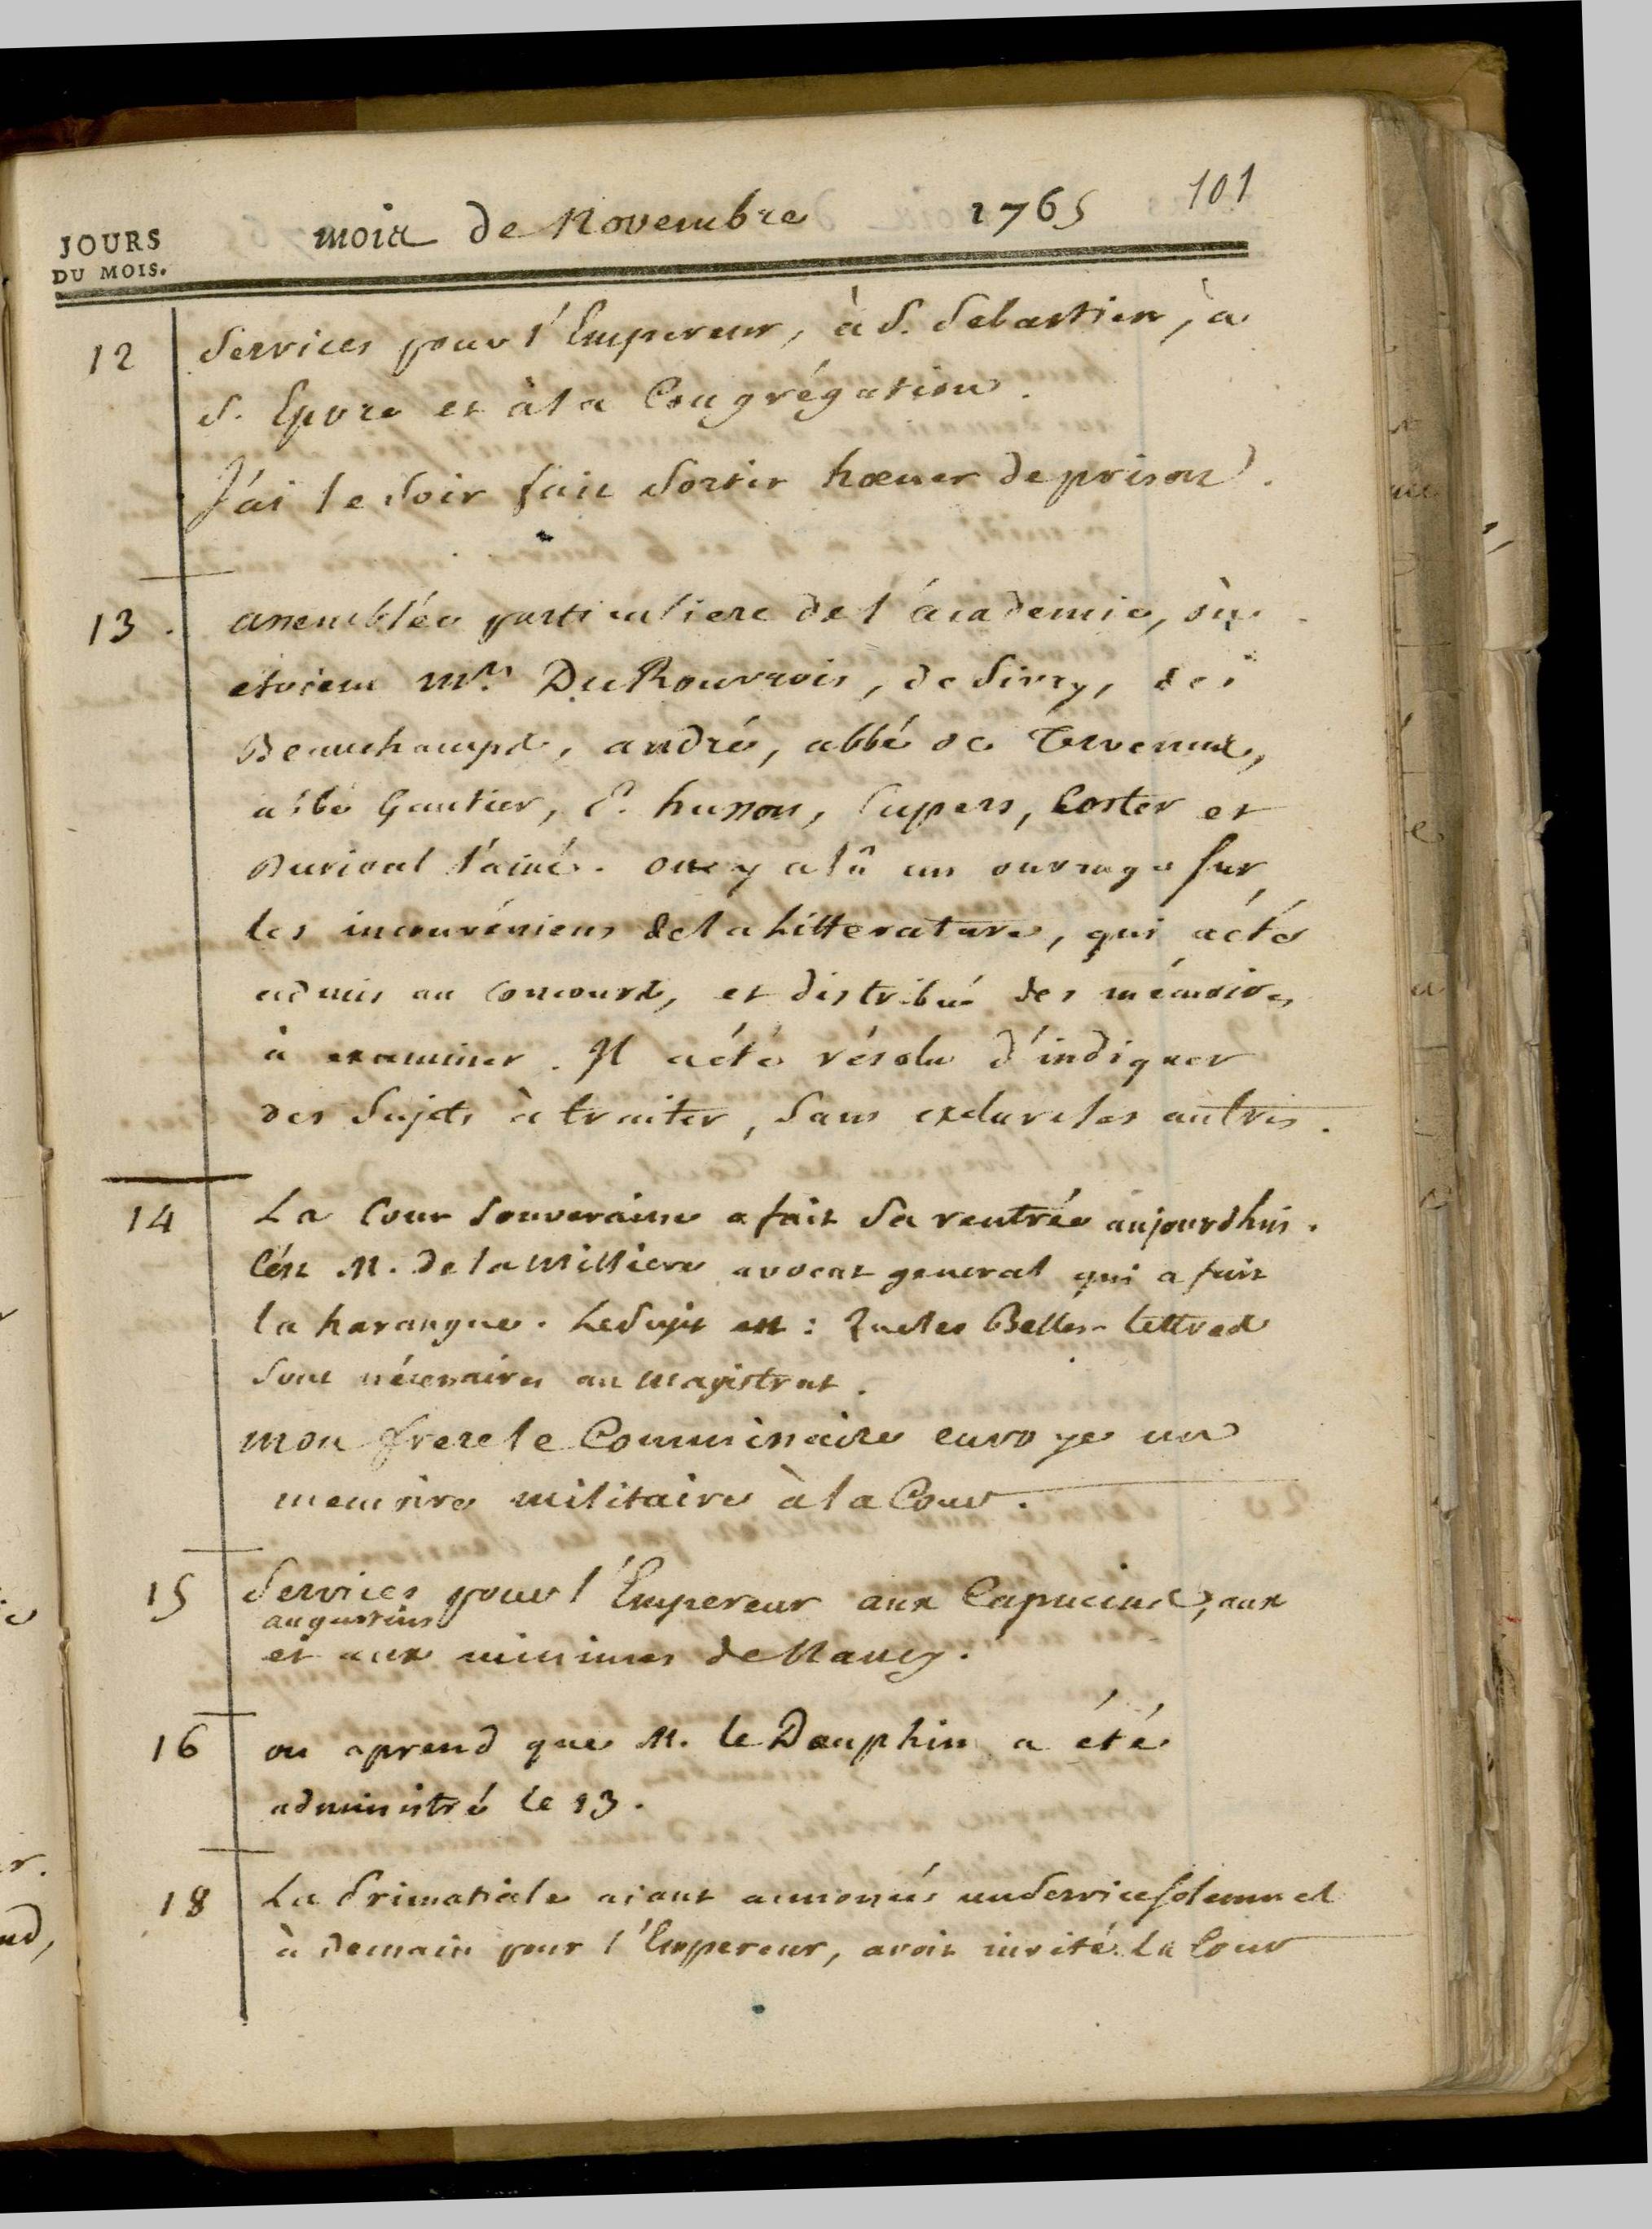 101
mois de Novembre 1765
JOURS
DU MOIS.
12 Services pour l'Empereur, à S. Sebastien, à
S. Epvre et à la Congrégation.
J'ai le soir fait sortir hœner de prison.
13. assemblée particuliere de l'académie, où
etoient Mrs. DuRouvrois, de Sivry, de
Beauchamps, andré, abbé de Tervenus,
abbé Gautier, P. husson, Cupers, Coster et
Durival l'ainé. on y a lû un ouvrage sur
les inconvéniens de la Litterature, qui a été
admis au concours, et distribué des mémoires
à examiner. Il a été résolu d'indiquer
des sujets à traiter, sans exclure les autres.
14 La Cour Souveraine a fait sa rentrée aujourdhui.
C'est M. de la Milliere avocat general qui a fait
la harangue. Le sujet est: Que les Belles-lettres
sont nécessaires au Magistrat.
mon frere le Commissaire envoye un
memoire militaire à la Cour.
15 Services pour l'Empereur aux Capucins, aux
augustins
et aux minimes de Nancy.
16 on aprend que M. le Dauphin a été
administré le 13.
18 La Primatiale aiant annoncés un Service solemnel
à demain pour l'Empereur, avoit invité la Cour